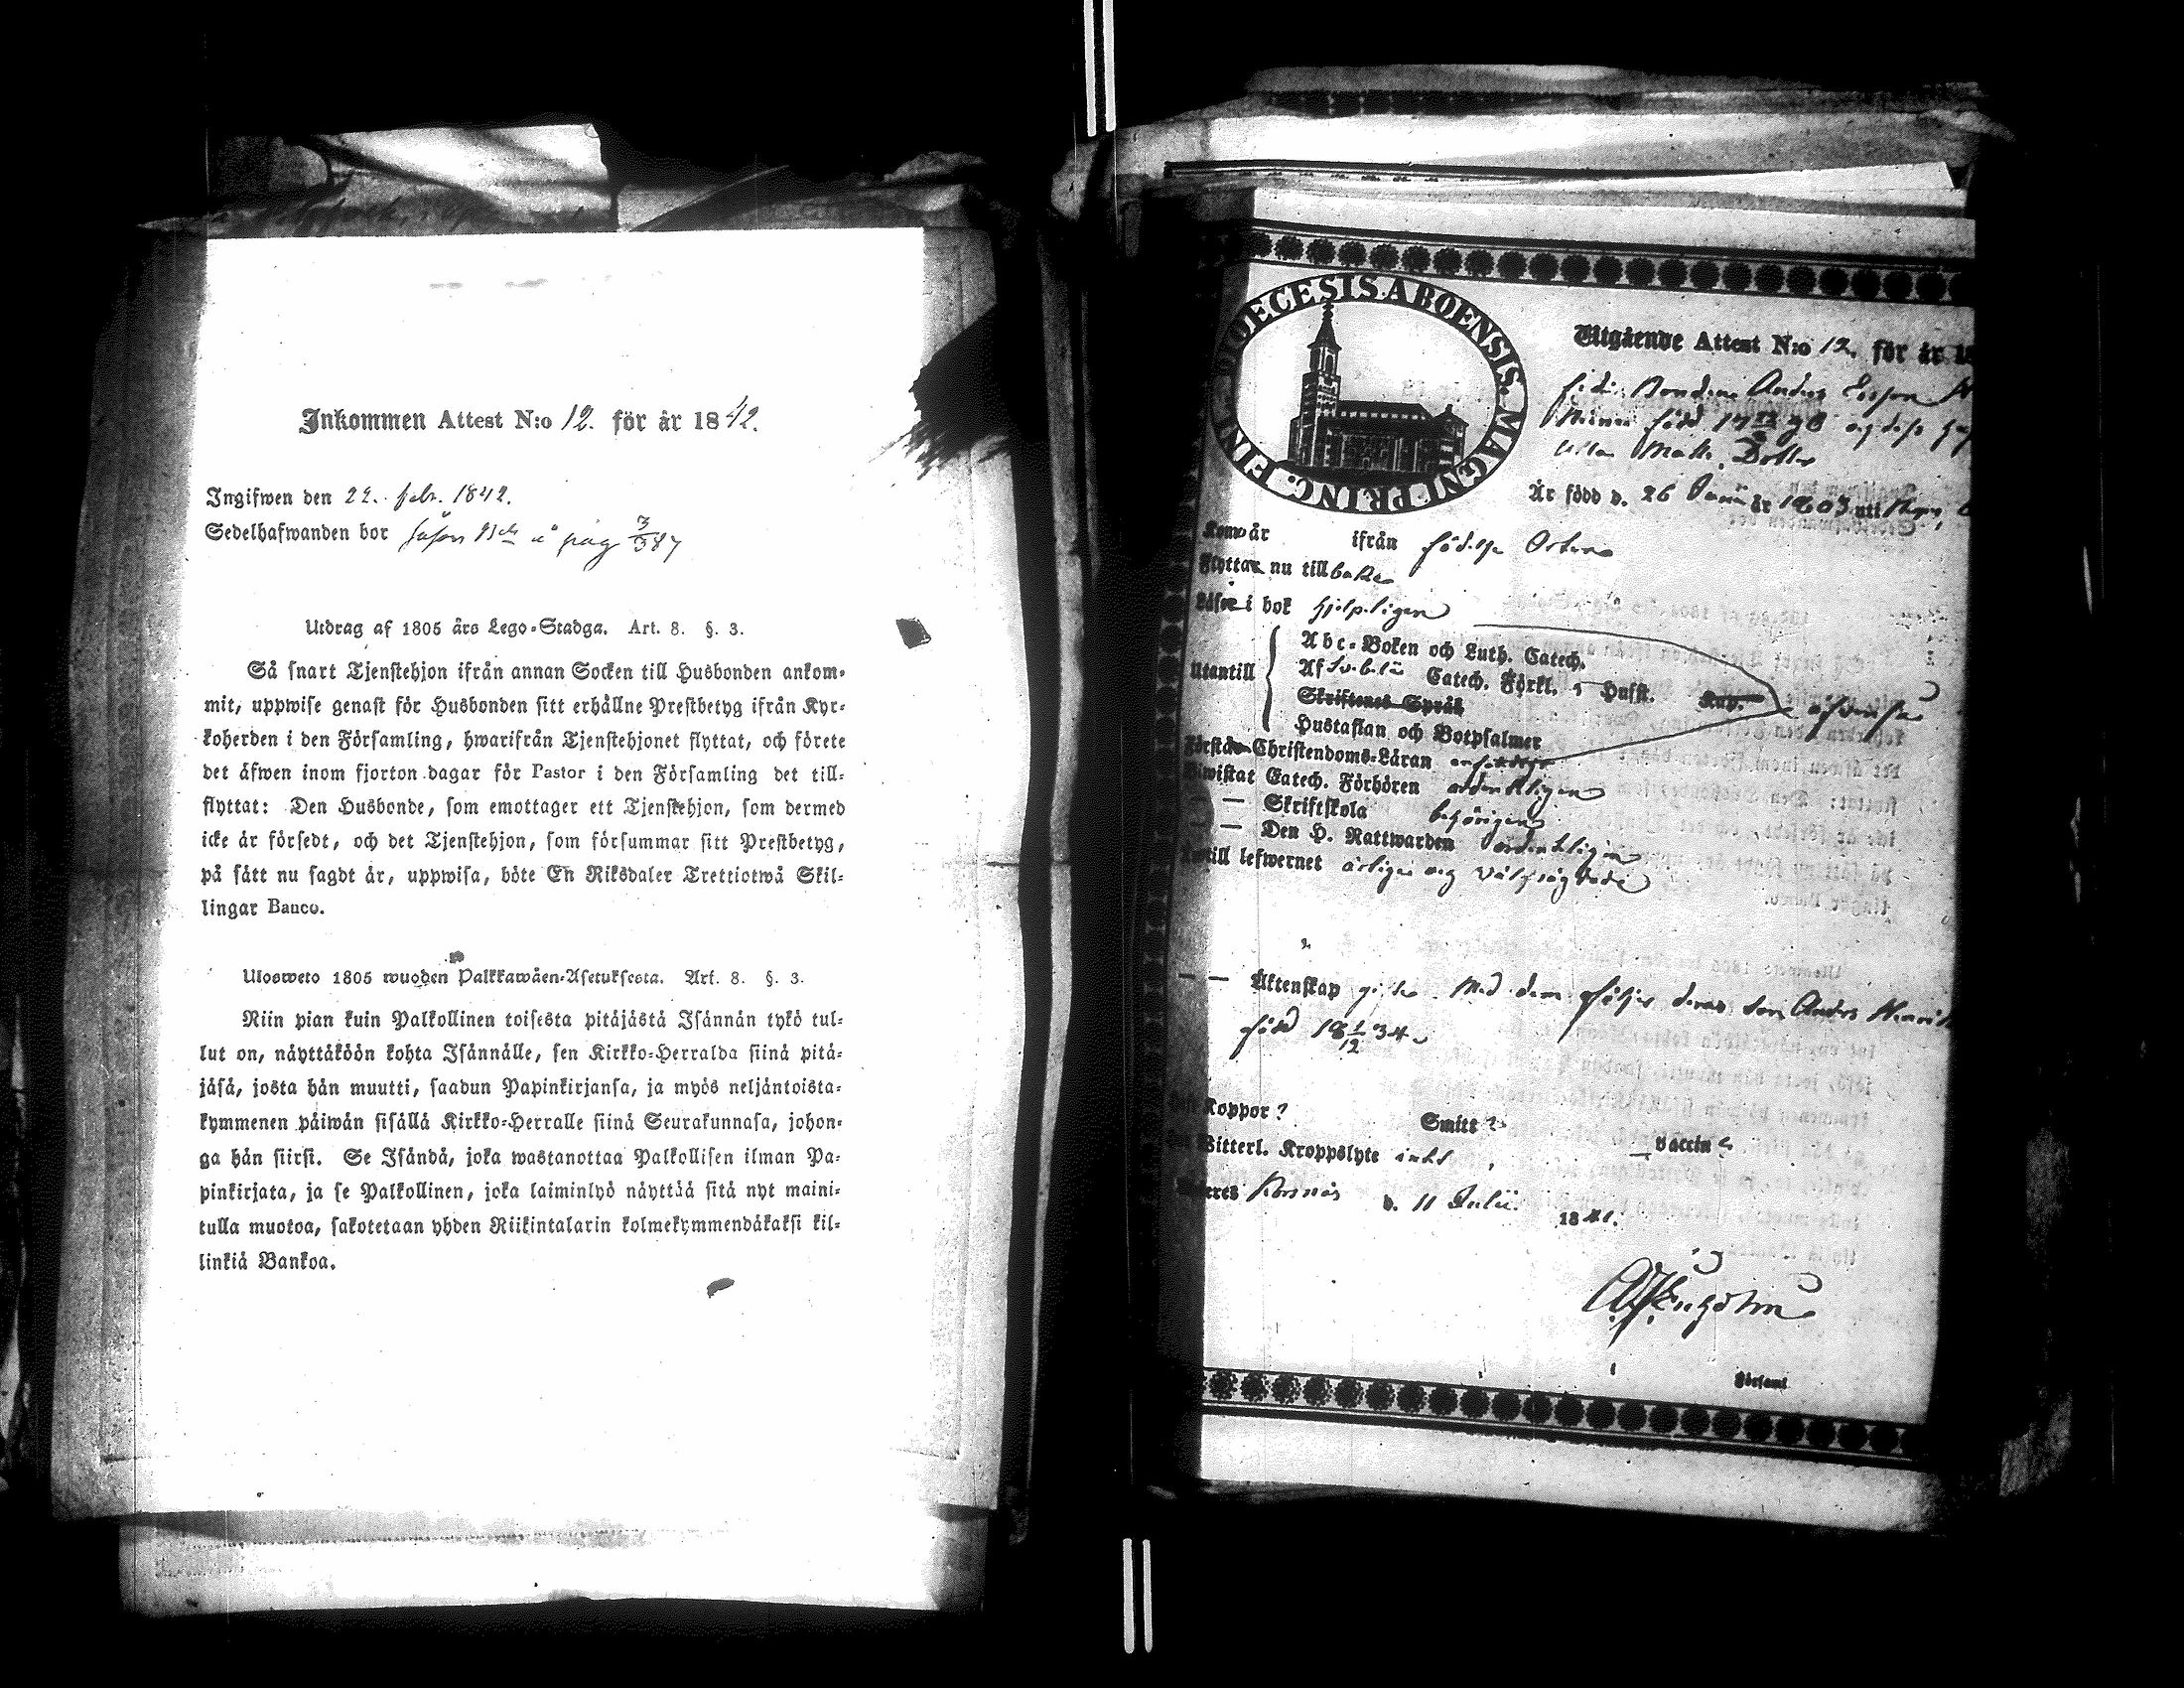 Inkommen Attest N:o 12. för år 1842.
Ingifwen den 22. febr. 1842.
Sedelhafwanden bor å pag 3/387
Utdrag af 1805 års Lego-Stadga. Art. 8. §. 3.
Så snart Tjenstehjon ifrån annan Socken till Husbonden ankom-
mit, uppwise genast för Husbonden sitt erhållne Prestbetyg ifrån Kyr-
koherden i den Församling, hwarifrån Tjenstehjonet flyttat, och förete
det äfwen inom fjorton dagar för Pastor i den Församling det till-
flyttat: Den Husbonde, som emottager ett Tjenstehjon, som dermed
icke är försedt, och det Tjenstehjon, som försummar sitt Prestbetyg,
på sätt nu sagdt är, uppwisa, böte En Riksdaler Trettiotwå Skil-
lingar Banco.
Ulosweto 1805 wuoden Palkkawäen-Asetuksesta. Art. 8. §. 3.
Niin pian kuin Palkollinen toisesta pitäjästä Isännän tykö tul-
lut on, näyttäköön kohta Isännälle, sen Kirkko-Herralda siinä pitä-
jäsä, josta hän muutti, saadun Papinkirjansa, ja myös neljäntoista-
kymmenen päiwän sisällä Kirkko-Herralle siinä Seurakunnasa, johon-
ga hän siirsi. Se Isändä, joka wastanottaa Palkollisen ilman Pa-
pinkirjata, ja se Palkollinen, joka laiminlyö näyttää sitä nyt maini-
tulla muotoa, sakotetaan yhden Riikintalarin kolmekymmendäkaksi kil-
linkiä Bankoa.
DIOECESIS ABOENSIS. MAGNI PRINC. FINL
Utgående Attest N:o 12. för år 18
f. d. Bonden Anders Ersson
född 17 98 och dess
Ulla Matts Dotter
Är född d. 26 Junii år 1803 uti
Kom år ifrån födelse Orten
Flyttar nu till baka
Läser i bok hjelpligen
Utantill
Abc-Boken och Luth. Catech.
Af Svebelii Catech. Förkl. 5 Hufst. Kap.
Skriftenes Språk
Hustaflan och Botpsalmer
Förstår Christendoms-Läran
Biwistat Catech. Förhören ordentligen
— — Skriftskola behörigen
— — Den H. Nattwarden ordentligen
till lefwernet ärlige och välfrägdade
— — Äktenskap gifta. Med dem följer deras son Anders Henrik
född 18 1/12 34.
Koppor? Smitt? vaccin?
Witterl. Kroppslyte intet
d. 11 Julii 1841.
Församl